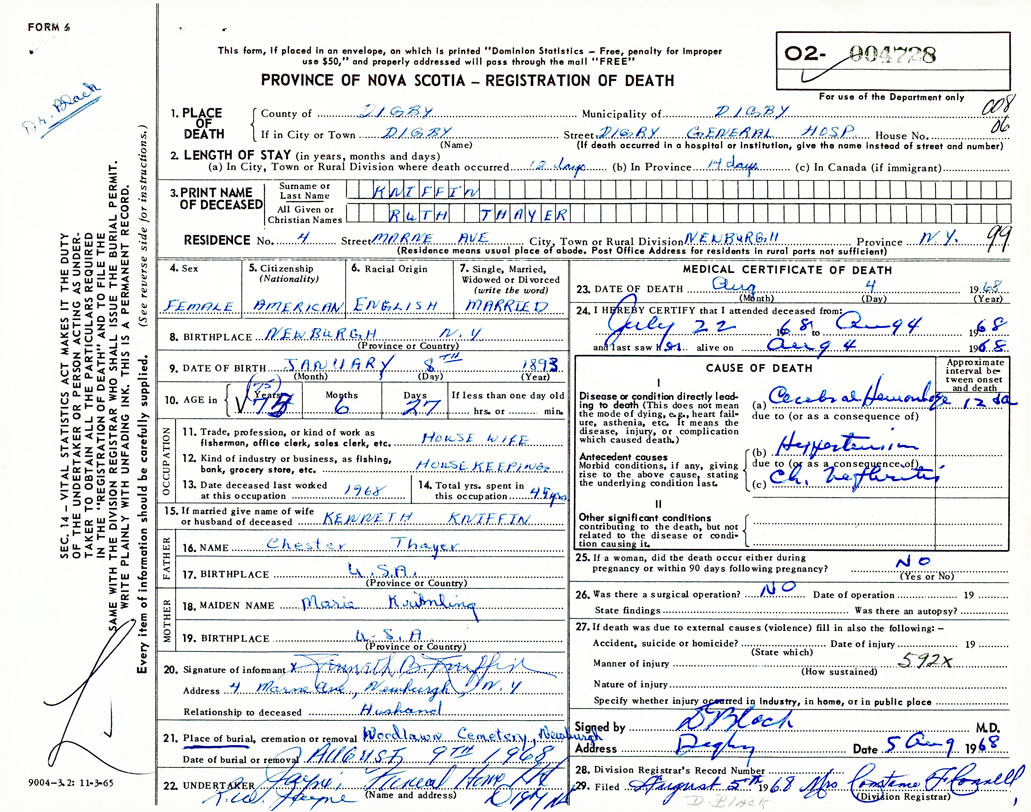 FORM 6
Dr. Black
This form, if placed in an envelope, on which is printed "Dominion Statistics – Free, penalty for improper
use $50," and properly addressed will pass through the mail "FREE"
PROVINCE OF NOVA SCOTIA – REGISTRATION OF DEATH
02- 004728
For use of the Department only
008
06
1. PLACE OF DEATH
County of DIGBY Municipality of DIGBY
If in City or Town DIGBY Street DIGBY GENERAL HOSP House No.
(Name) (If death occurred in a hospital or institution, give the name instead of street and number)
2. LENGTH OF STAY (in years, months and days)
(a) In City, Town or Rural Division where death occurred 12 days (b) In Province 14 days (c) In Canada (if immigrant)
3. PRINT NAME OF DECEASED
Surname or Last Name KNIFFIN
All Given or Christian Names RUTH THAYER
RESIDENCE No. 4 Street MARNE AVE City, Town or Rural Division NEWBURGH Province N.Y. 99
(Residence means usual place of abode. Post Office Address for residents in rural parts not sufficient)
4. Sex
FEMALE
5. Citizenship (Nationality)
AMERICAN
6. Racial Origin
ENGLISH
7. Single, Married, Widowed or Divorced (write the word)
MARRIED
8. BIRTHPLACE NEWBURGH N.Y
(Province or Country)
9. DATE OF BIRTH JANUARY 8TH 1893
(Month) (Day) (Year)
10. AGE in Years 75 Months 6 Days 27 If less than one day old
hrs. or min.
OCCUPATION
11. Trade, profession, or kind of work as fisherman, office clerk, sales clerk, etc. HOUSE WIFE
12. Kind of industry or business, as fishing, bank, grocery store, etc. HOUSE KEEPING
13. Date deceased last worked at this occupation 1968
14. Total yrs. spent in this occupation 45 yrs
15. If married give name of wife or husband of deceased KENNETH KNIFFIN
FATHER
16. NAME Chester Thayer
17. BIRTHPLACE U.S.A.
(Province or Country)
MOTHER
18. MAIDEN NAME Marie
19. BIRTHPLACE U.S.A.
(Province or Country)
20. Signature of informant x Kenneth B. Kniffin
Address 4 Marne Ave., Newburgh, N.Y
Relationship to deceased Husband
21. Place of burial, cremation or removal Woodlawn Cemetery, Newburgh
Date of burial or removal AUGUST 9TH 1968
22. UNDERTAKER Jayne's Funeral Home Ltd
(Name and address) Digby NS
MEDICAL CERTIFICATE OF DEATH
23. DATE OF DEATH Aug 4 1968
(Month) (Day) (Year)
24. I HEREBY CERTIFY that I attended deceased from:
July 22 1968 to Aug 4 1968
and last saw her alive on Aug 4 1968
CAUSE OF DEATH
Approximate interval between onset and death
I
Disease or condition directly leading to death (This does not mean the mode of dying, e.g., heart failure, asthenia, etc. It means the disease, injury, or complication which caused death.)
(a) Cerebral Hemorrhage 12 da
due to (or as a consequence of)
Antecedent causes
Morbid conditions, if any, giving rise to the above cause, stating the underlying condition last.
(b) Hypertension
due to (or as a consequence of)
(c) Ch. Nephritis
II
Other significant conditions
contributing to the death, but not related to the disease or condition causing it.
25. If a woman, did the death occur either during pregnancy or within 90 days following pregnancy? NO
(Yes or No)
26. Was there a surgical operation? NO Date of operation 19
State findings Was there an autopsy?
27. If death was due to external causes (violence) fill in also the following: –
Accident, suicide or homicide? Date of injury 19
(State which)
Manner of injury 592x
(How sustained)
Nature of injury
Specify whether injury occurred in Industry, in home, or in public place
Signed by D Black M.D.
Address Digby Date 5 Aug 1968
28. Division Registrar's Record Number
29. Filed August 5th 1968 Mrs Constance
(Division Registrar)
D. BLACK
SEC. 14 – VITAL STATISTICS ACT MAKES IT THE DUTY
OF THE UNDERTAKER OR PERSON ACTING AS UNDER-
TAKER TO OBTAIN ALL THE PARTICULARS REQUIRED
IN THE "REGISTRATION OF DEATH" AND TO FILE THE
SAME WITH THE DIVISION REGISTRAR WHO SHALL ISSUE THE BURIAL PERMIT.
WRITE PLAINLY WITH UNFADING INK. THIS IS A PERMANENT RECORD.
Every item of information should be carefully supplied. (See reverse side for instructions.)
9004-3.2: 11-3-65